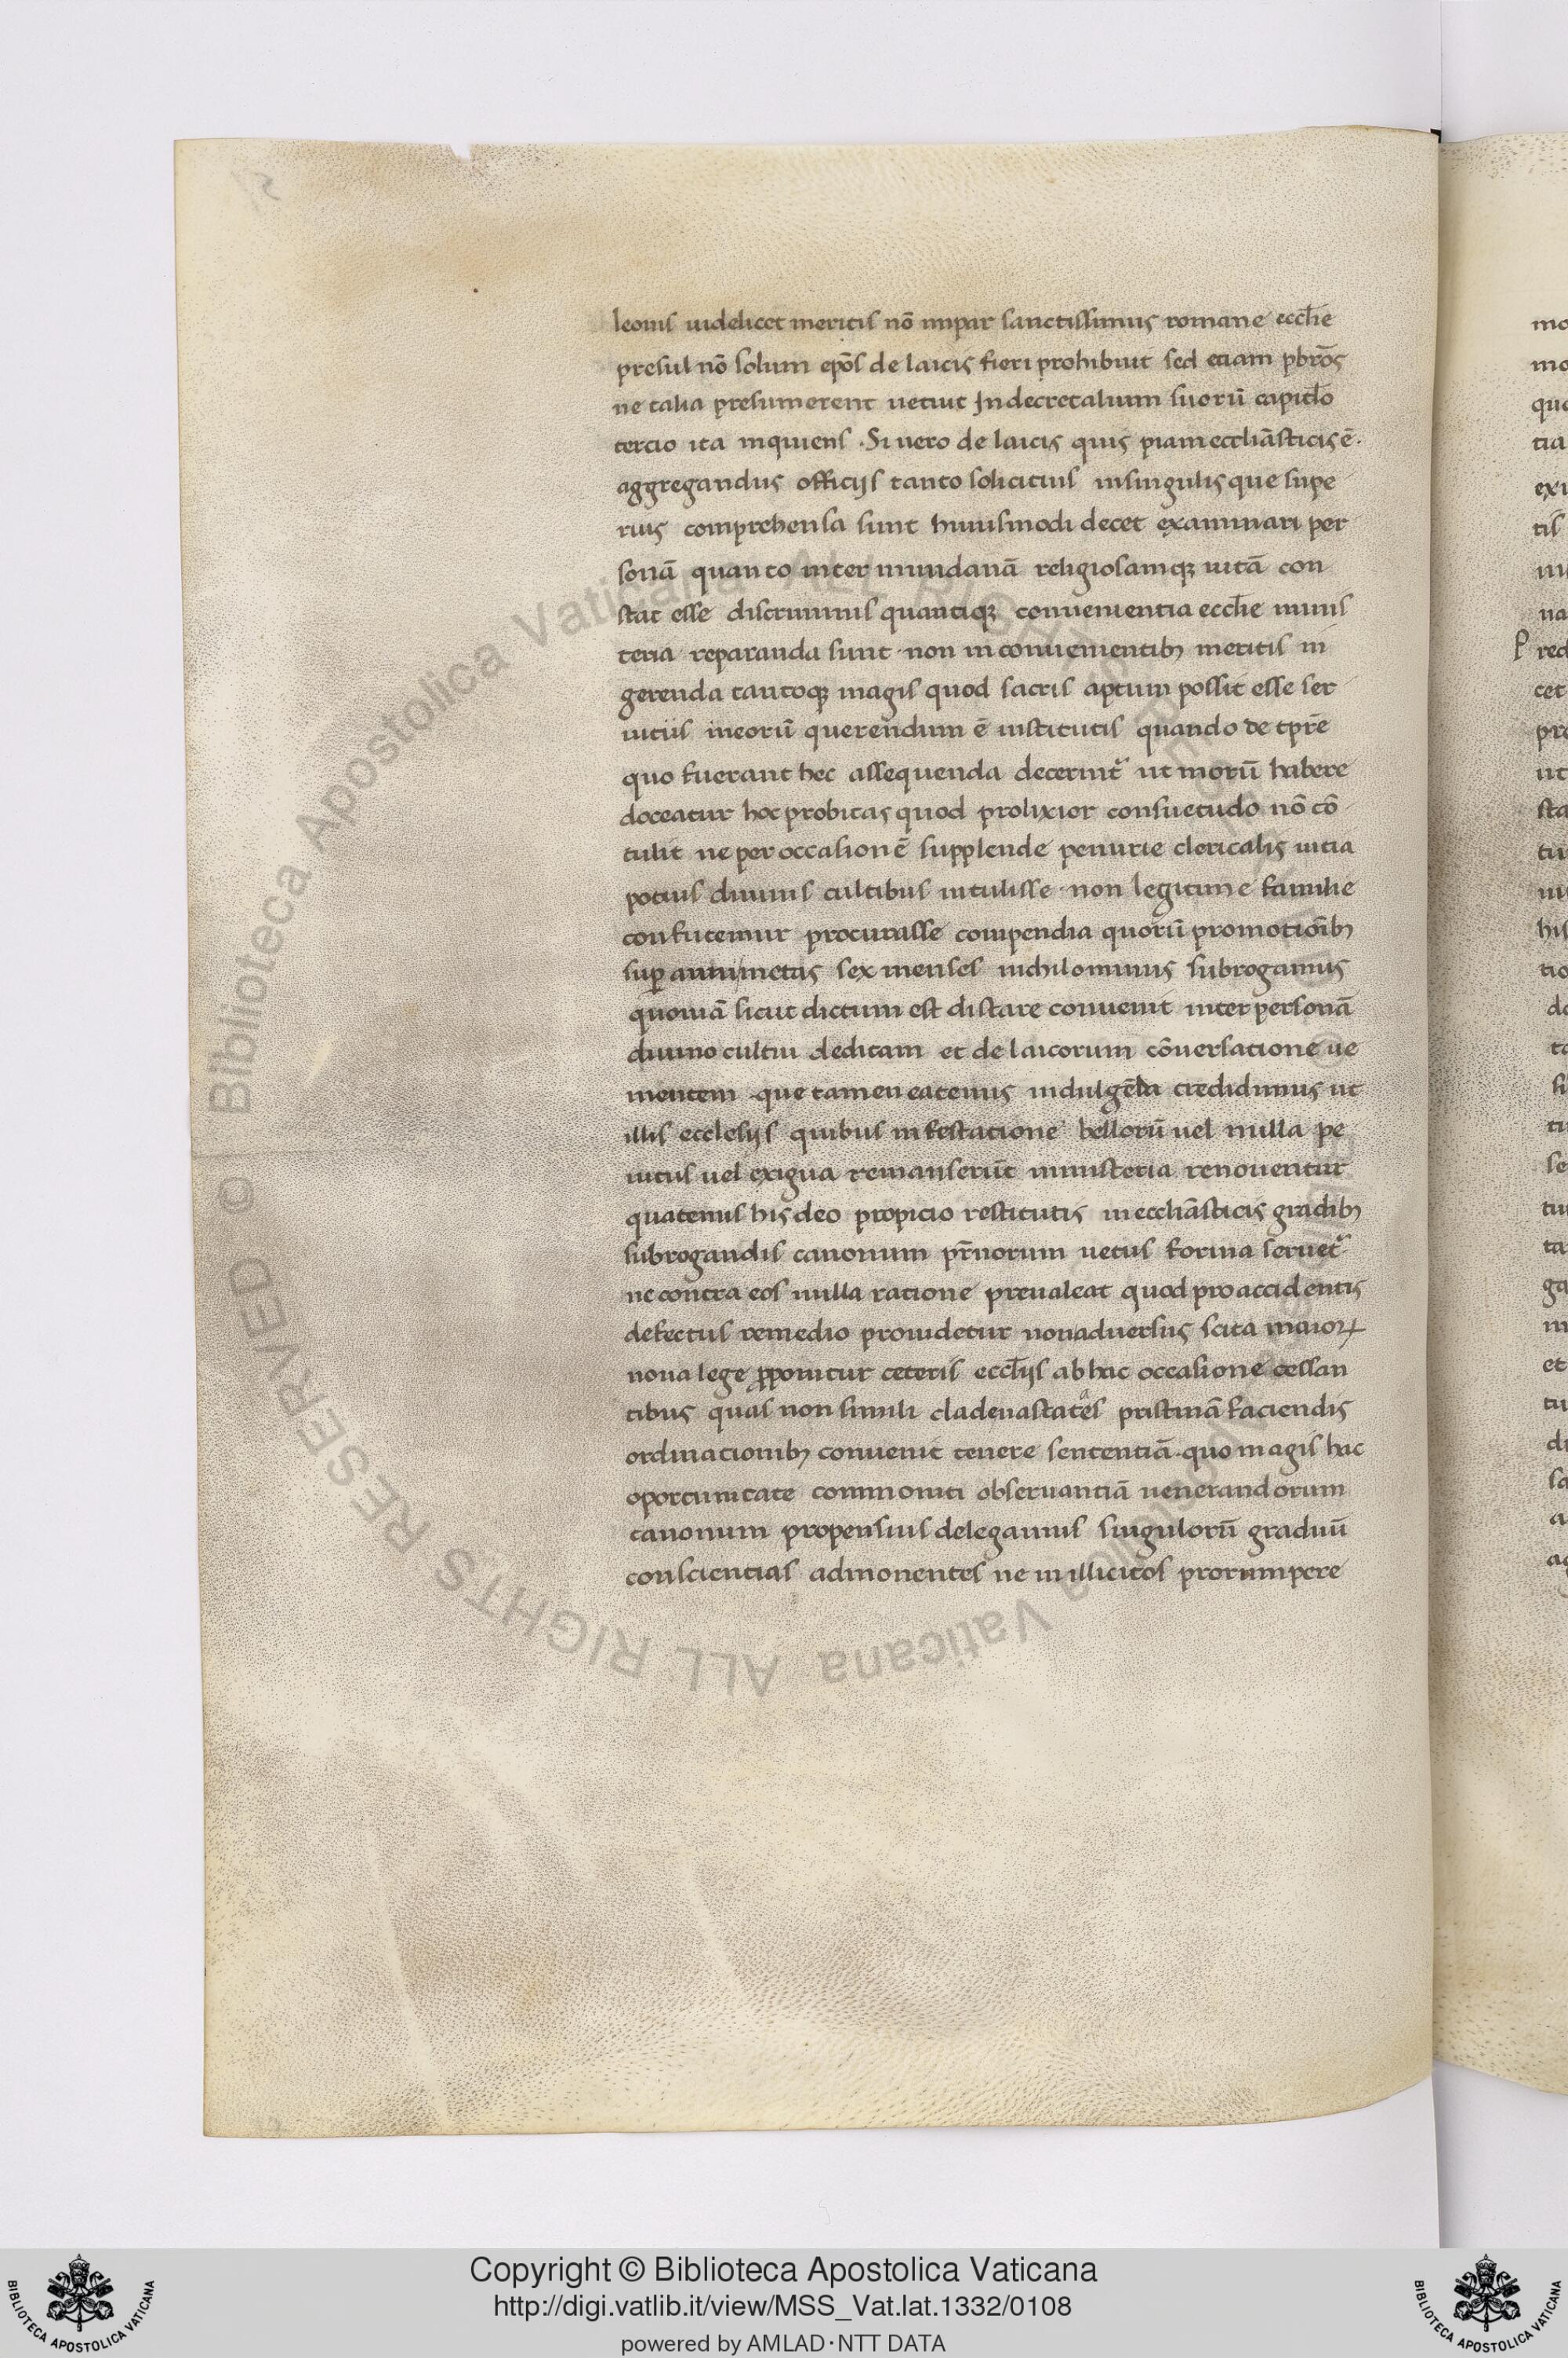 leonis uidelicet meritis nō impar sanctissimus romane eccl̄ie
presul nō solum ep̄os de laicis fieri prohibuit sed etiam pbr̄os
ne talia presumerent uetuit Indecretalium suorū capitl̄o
tercio ita inquiens · Si uero de laicis quis piam eccliāsticis ē·
aggregandus officijs tanto solicitius insingulis que supe
rius comprehensa sunt huiusmodi decet examinari per
sonā quanto inter mundanā religiosamqꝫ uitā con
stat esse discriminis quantiqꝫ conuenientia eccl̄ie minis
teria reparanda sunt · non inconuenientibꝫ meritis in
gerenda tantoqꝫ magis quod sacris aptum possit esse ser
uitiis ineorū querendum ē institutis quando de tpr̄e
quo fuerant hec assequenda decernit᷑ ut morū habere
doceatur hoc probitas quod prolixior consuetudo nō cō
tulit ne per occasionē supplende penurie clericalis uitia
potius diuinis cultibus intulisse · non legitime familie
confutemur procurasse compendia quorū promotiōibꝫ
suꝑ anni metas sex menses nichilominus subrogamus
quoniā sicut dictum est distare conuenit inter personā
diuino cultui deditam et de laicorum cōuersatione ue
nientem · que tamen eatenus indulgēda credidimus ut
illis ecclesijs quibus infestatione bellorū uel nulla pe
nitus uel exigua remanserūt ministeria renouentur
quatenus his deo propicio restitutis in eccliāsticis gradibꝫ
subrogandis canonum pr̄norum uetus forma seruet᷑
ne contra eos nulla ratione preualeat quod pro accidentis
defectus remedio prouidetur non aduersus scita maioꝝ
noua lege ꝓponitur ceteris eccl̄ijs ab hac occasione cessan
tibus quas non simili clade uastatēs pristinā faciendis
ordinacionibꝫ conuenit tenere sententiā · quo magis hac
oportunitate commoniti obseruantiā uenerandorum
canonum propensius delegamus singulorū graduū
consciencias admonentes ne in illicitos prorumpere
Copyright © Biblioteca Apostolica Vaticana
http://digi.vatlib.it/view/MSS_Vat.lat.1332/0108
powered by AMLAD·NTT DATA
BIBLIOTECA APOSTOLICA VATICANA
BIBLIOTECA APOSTOLICA VATICANA